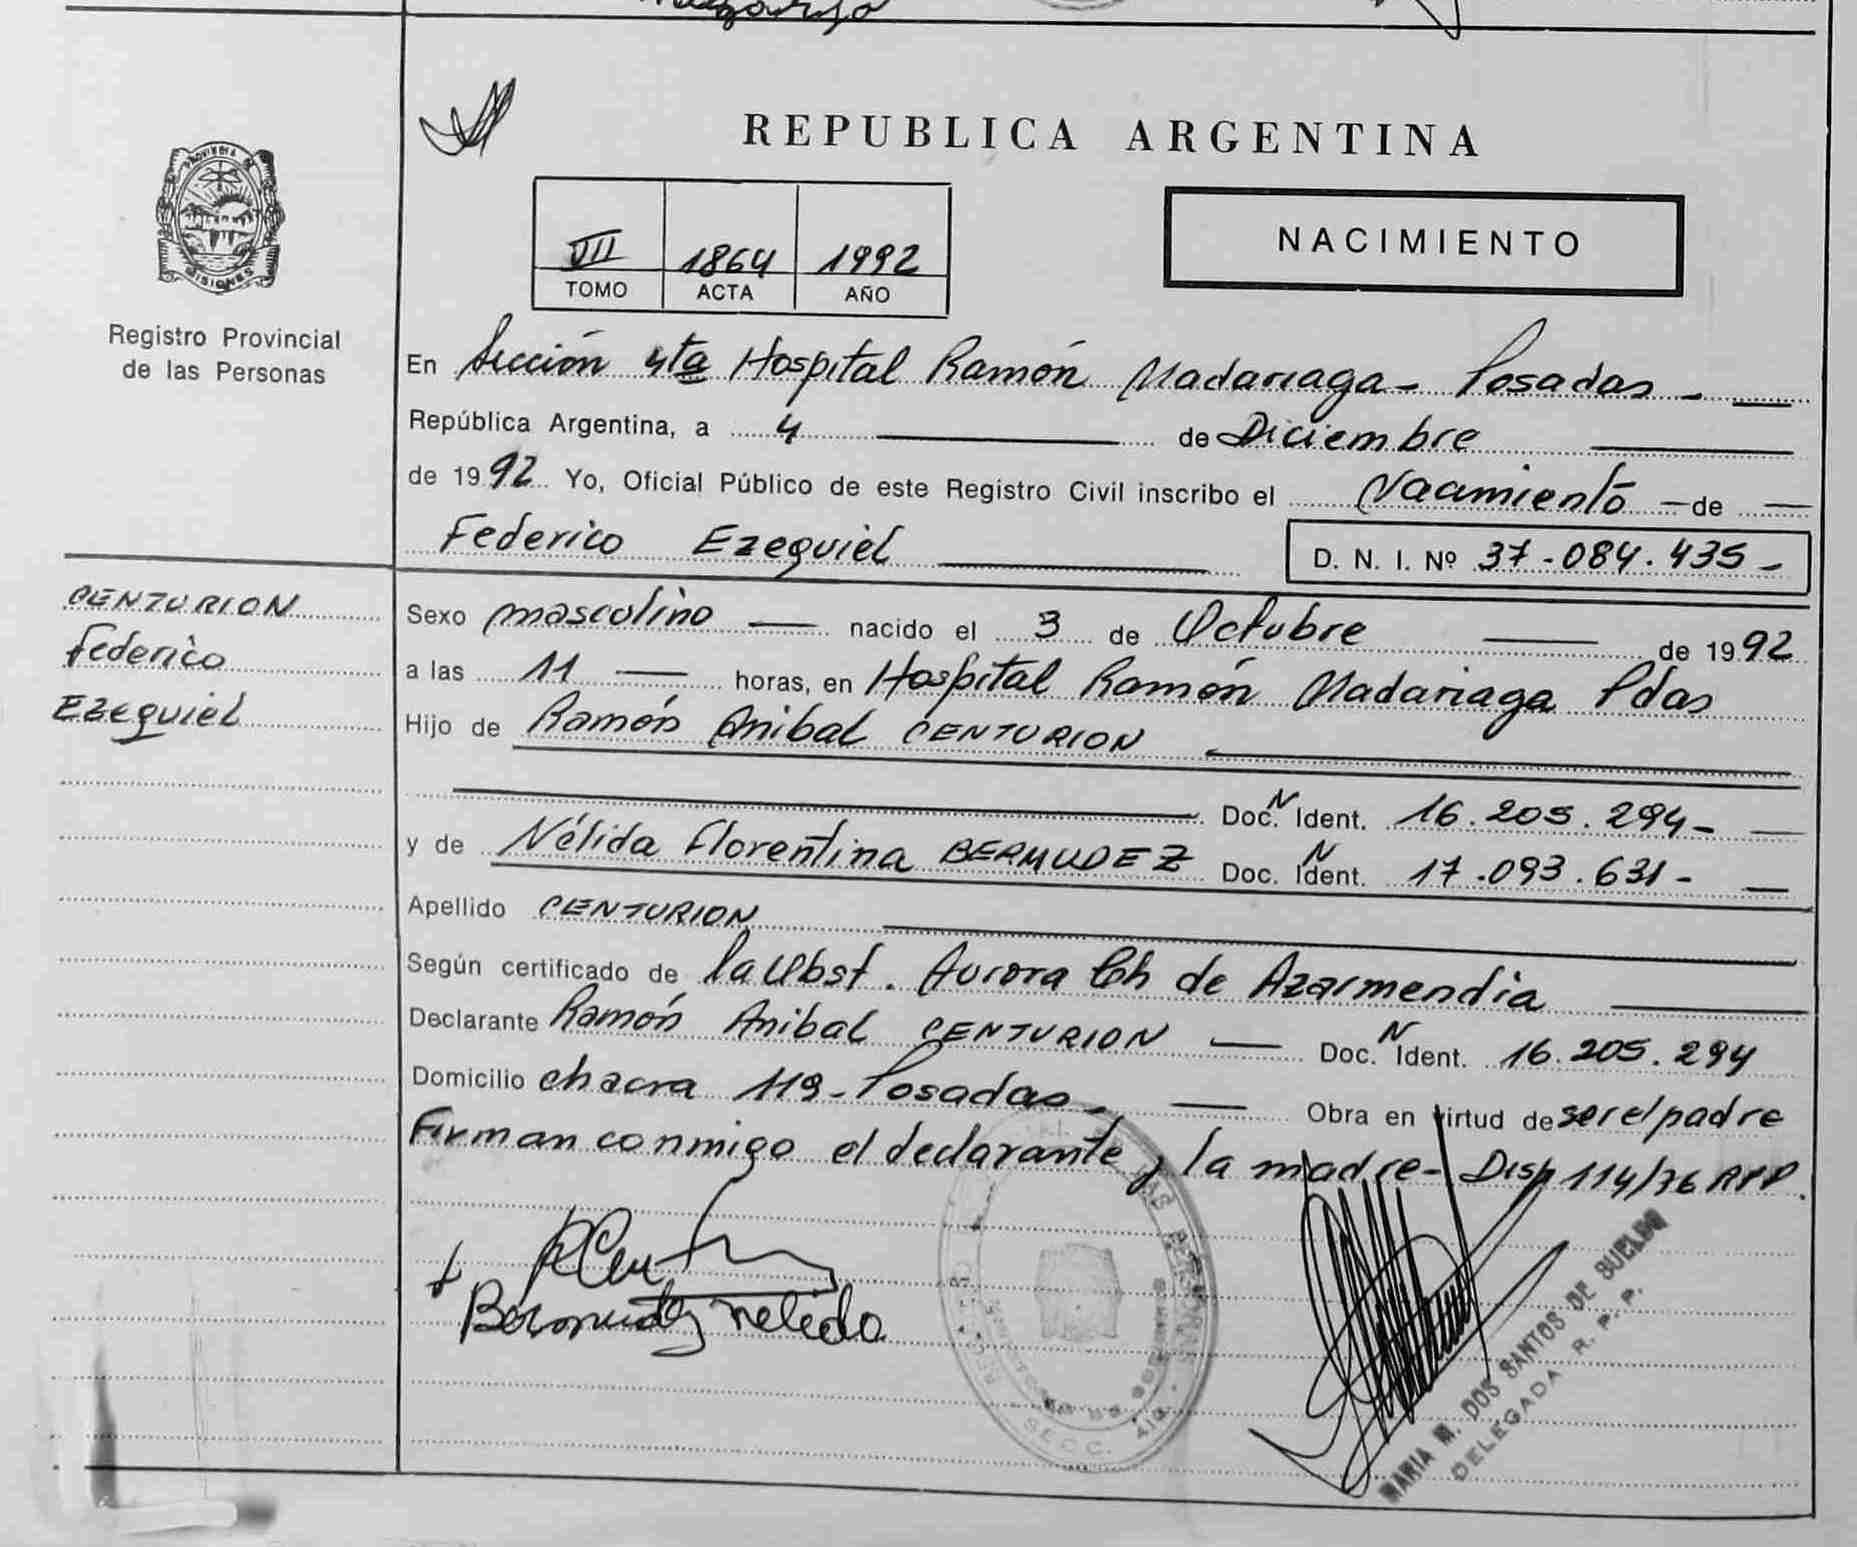 REPUBLICA ARGENTINA
PROVINCIA DE
MISIONES
Registro Provincial
de las Personas
VII 1864 1992
TOMO ACTA AÑO
NACIMIENTO
En Sección 4ta Hospital Ramón Madariaga - Posadas -
República Argentina, a 4 de Diciembre
de 1992 Yo, Oficial Público de este Registro Civil inscribo el Nacimiento de
Federico Ezequiel D. N. I. Nº 37.084.435 -
CENTURION
Federico
Ezequiel
Sexo masculino nacido el 3 de Octubre de 1992
a las 11 horas, en Hospital Ramón Madariaga Pdas
Hijo de Ramón Anibal CENTURION
Doc. N Ident. 16.205.294 -
y de Nélida Florentina BERMUDEZ Doc. N Ident. 17.093.631 -
Apellido CENTURION
Según certificado de la Obst. Aurora Ch de Azarmendia
Declarante Ramón Anibal CENTURION Doc. N Ident. 16.205.294
Domicilio chacra 119 - Posadas - Obra en virtud de ser el padre
Firman conmigo el declarante y la madre - Disp 114/76 RPP.
Bermudez Nelida
SECC. 4ta
MARIA M. DOS SANTOS DE SUELDO
DELEGADA R. P. P.